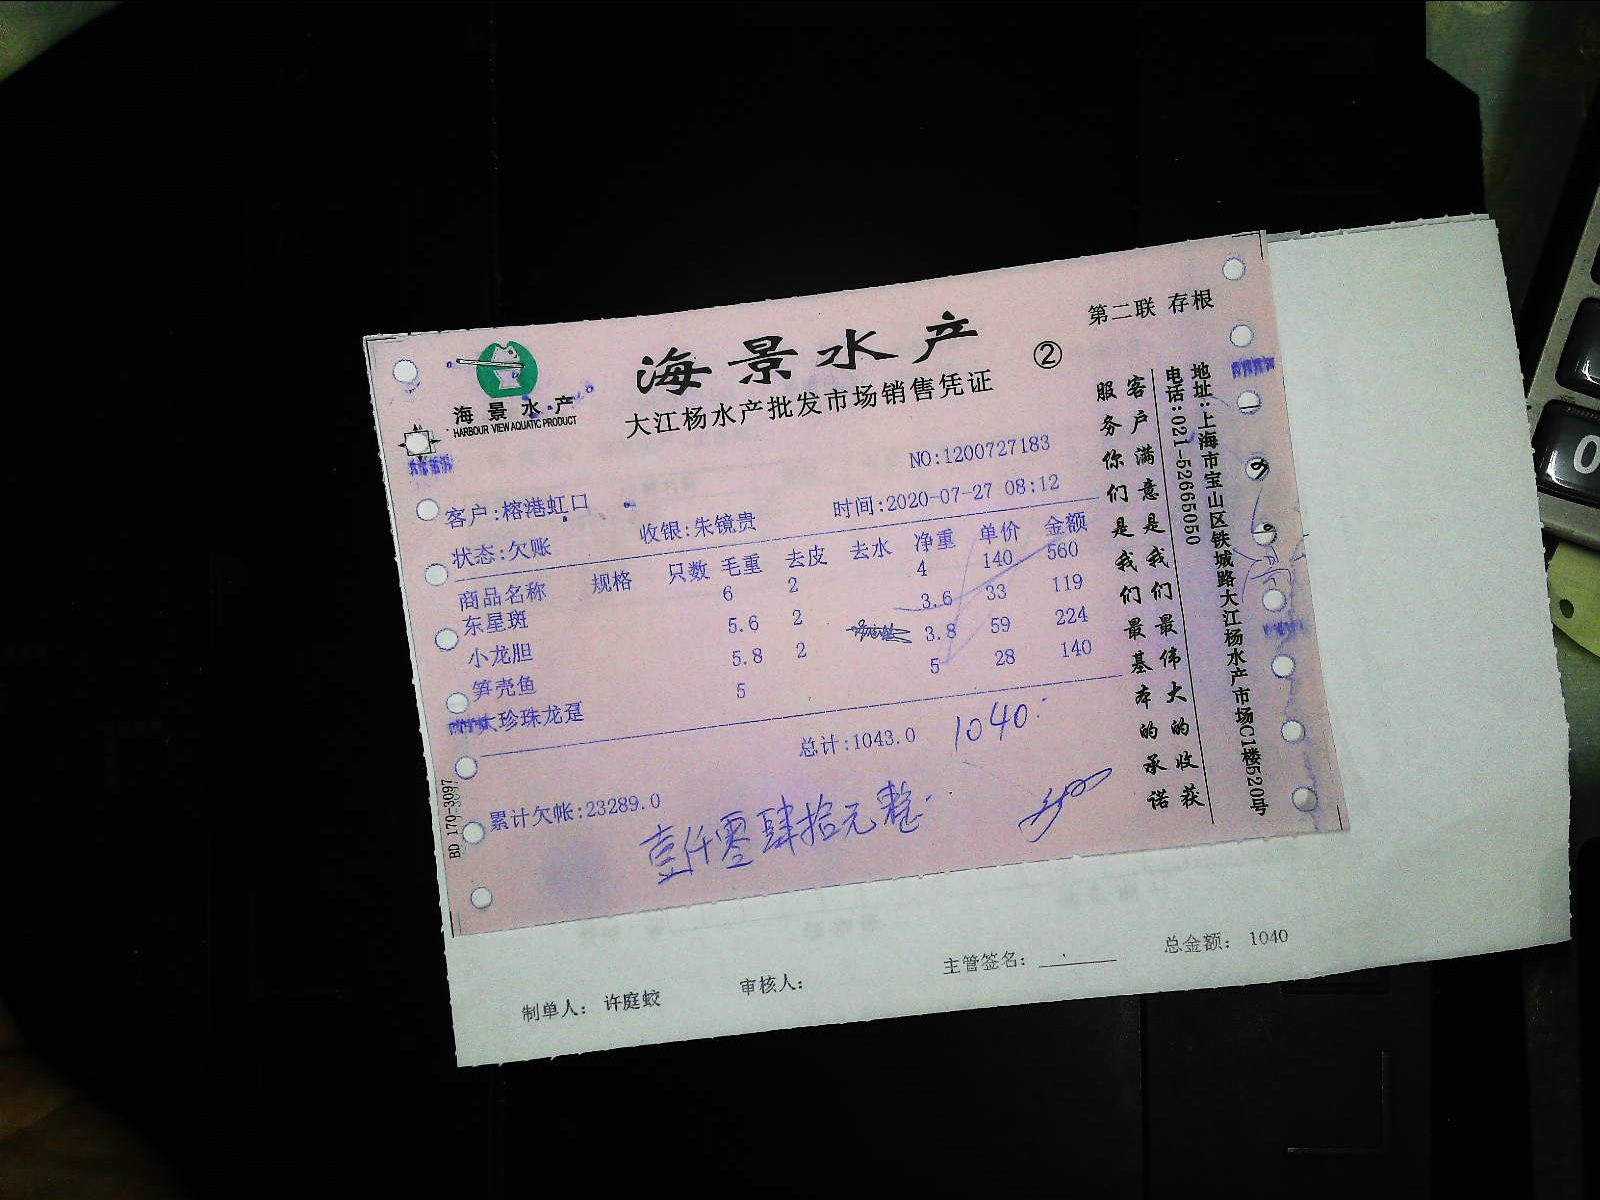 第二联 存根
海景水产
②
海景水产
HARBOUR VIEW AQUATIC PRODUCT
大江杨水产批发市场销售凭证
NO:1200727183
客户:榕港虹口
收银:朱镜贵
时间:2020-07-27 08:12
状态:欠账
商品名称 规格 只数 毛重 去皮 去水 净重 单价 金额
东星斑 6 2 4 140 560
小龙胆 5.6 2 3.6 33 119
笋壳鱼 5.8 2 3.8 59 224
大珍珠龙趸 5 5 28 140
总计:1043.0
1040
累计欠帐:23289.0
壹仟零肆拾元整
客户满意是我们最伟大的收获
服务你们是我们最基本的承诺
地址:上海市宝山区铁城路大江杨水产市场C1楼520号
电话:021-52665050
BD 170-3097
制单人: 许庭蛟
审核人:
主管签名:
总金额: 1040